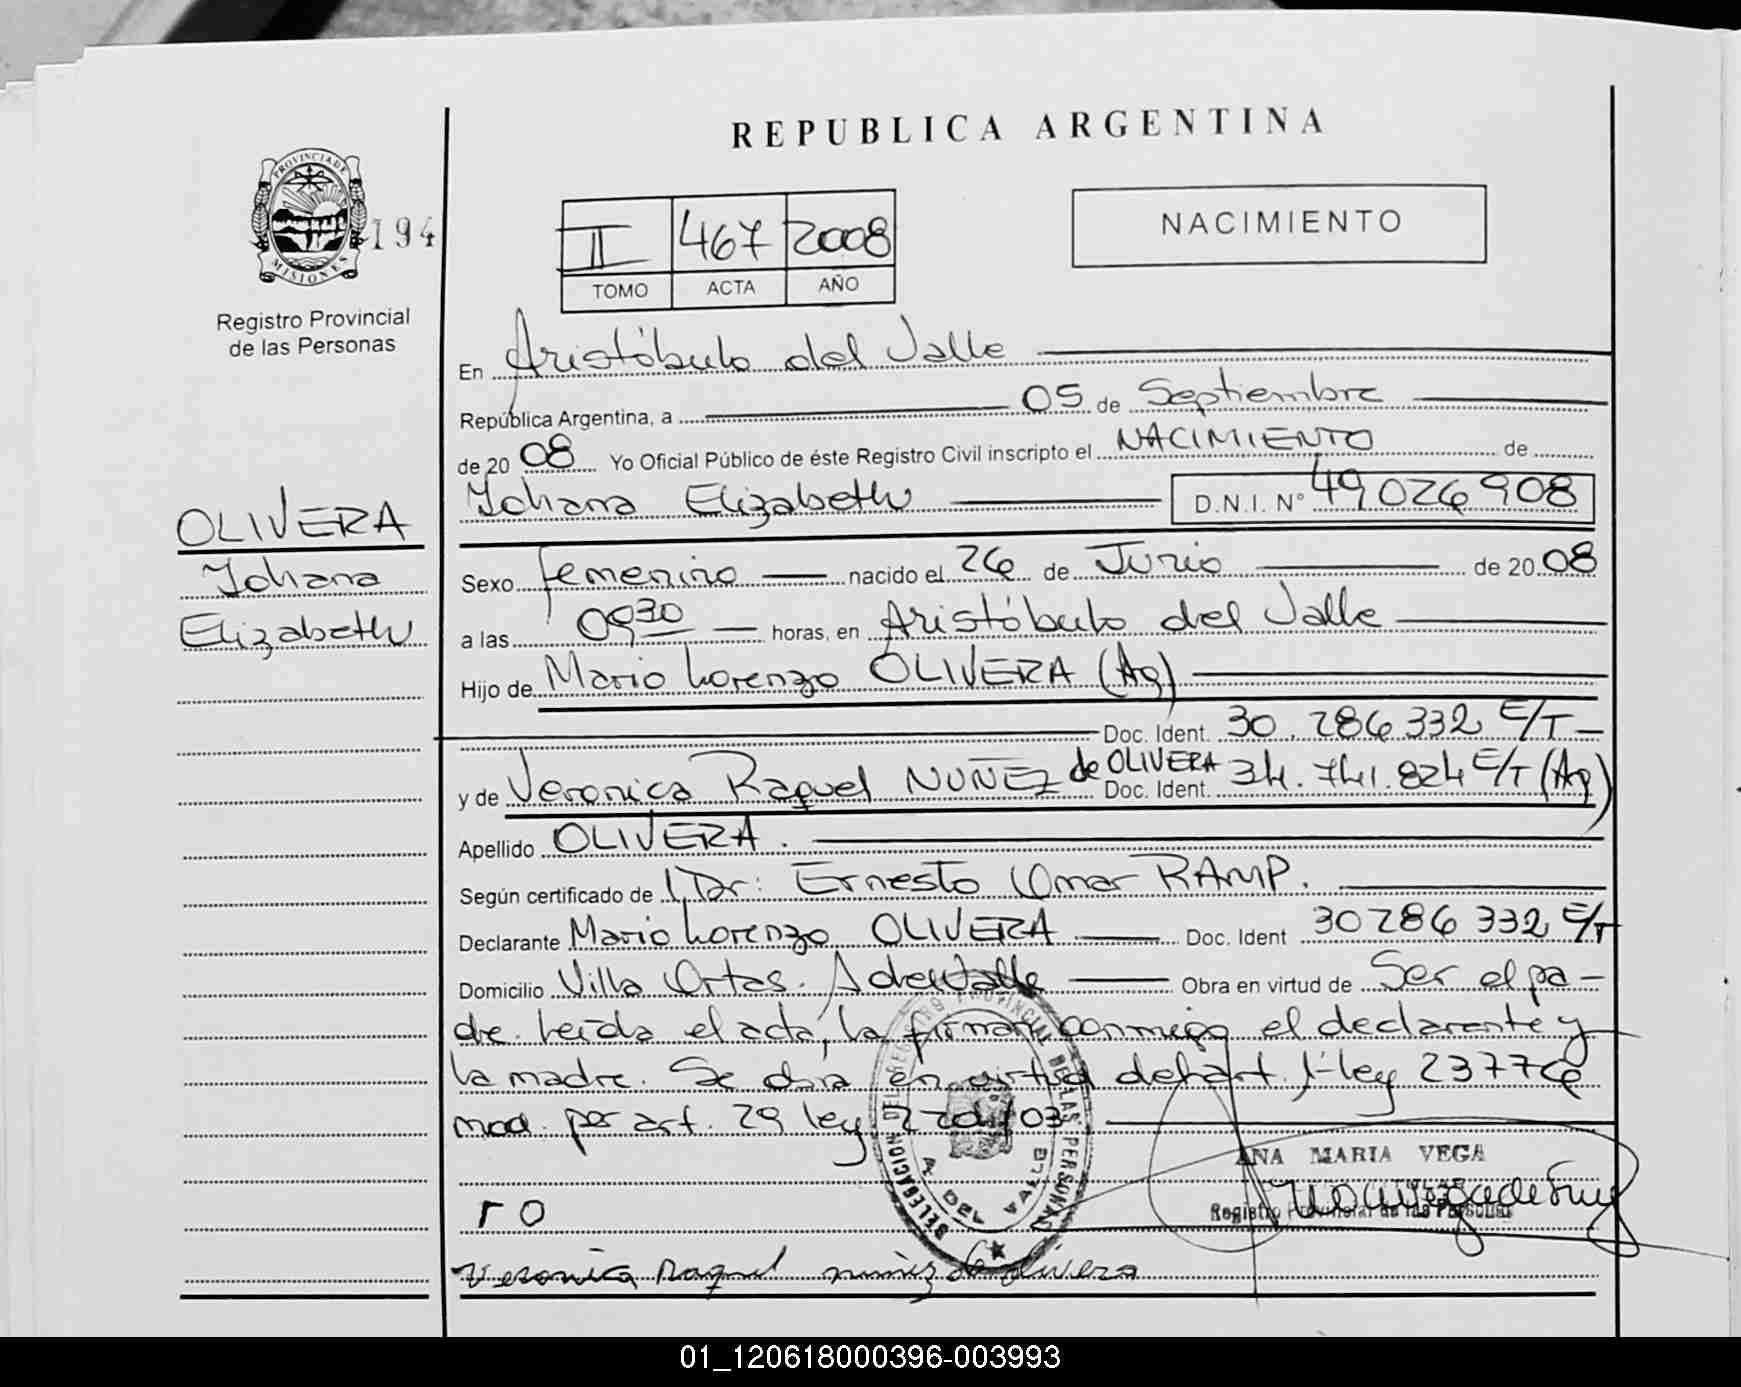 REPUBLICA ARGENTINA
PROVINCIA DE
MISIONES
194
Registro Provincial
de las Personas
II 467 2008
TOMO ACTA AÑO
NACIMIENTO
En Aristóbulo del Valle
República Argentina, a 05 de Septiembre
de 20 08 Yo Oficial Público de éste Registro Civil inscripto el NACIMIENTO de
Johana Elizabeth D.N.I. N° 49026908
OLIVERA
Johana
Elizabeth
Sexo femenino nacido el 26 de Junio de 20 08
a las 0930 horas, en Aristóbulo del Valle
Hijo de Mario Lorenzo OLIVERA (Ag)
Doc. Ident. 30.286332 E/T
y de Veronica Raquel NUÑEZ de OLIVERA Doc. Ident. 34.741.824 E/T (Ag)
Apellido OLIVERA.
Según certificado de Dr: Ernesto Omar RAMP.
Declarante Mario Lorenzo OLIVERA Doc. Ident 30286332 E/T
Domicilio Villa Ortas. A del Valle Obra en virtud de Ser el pa-
dre. Leída el acta, la firman conmigo el declarante y
la madre. Se obra en virtud del art. 1-ley 23776
mod. por art. 29 ley
DELEGACION DEL REGISTRO PROVINCIAL DE LAS PERSONAS
A. DEL VALLE
ANA MARIA VEGA
Registro Provincial de las Personas
Veronica Raquel nuñez de olivera
01_120618000396-003993